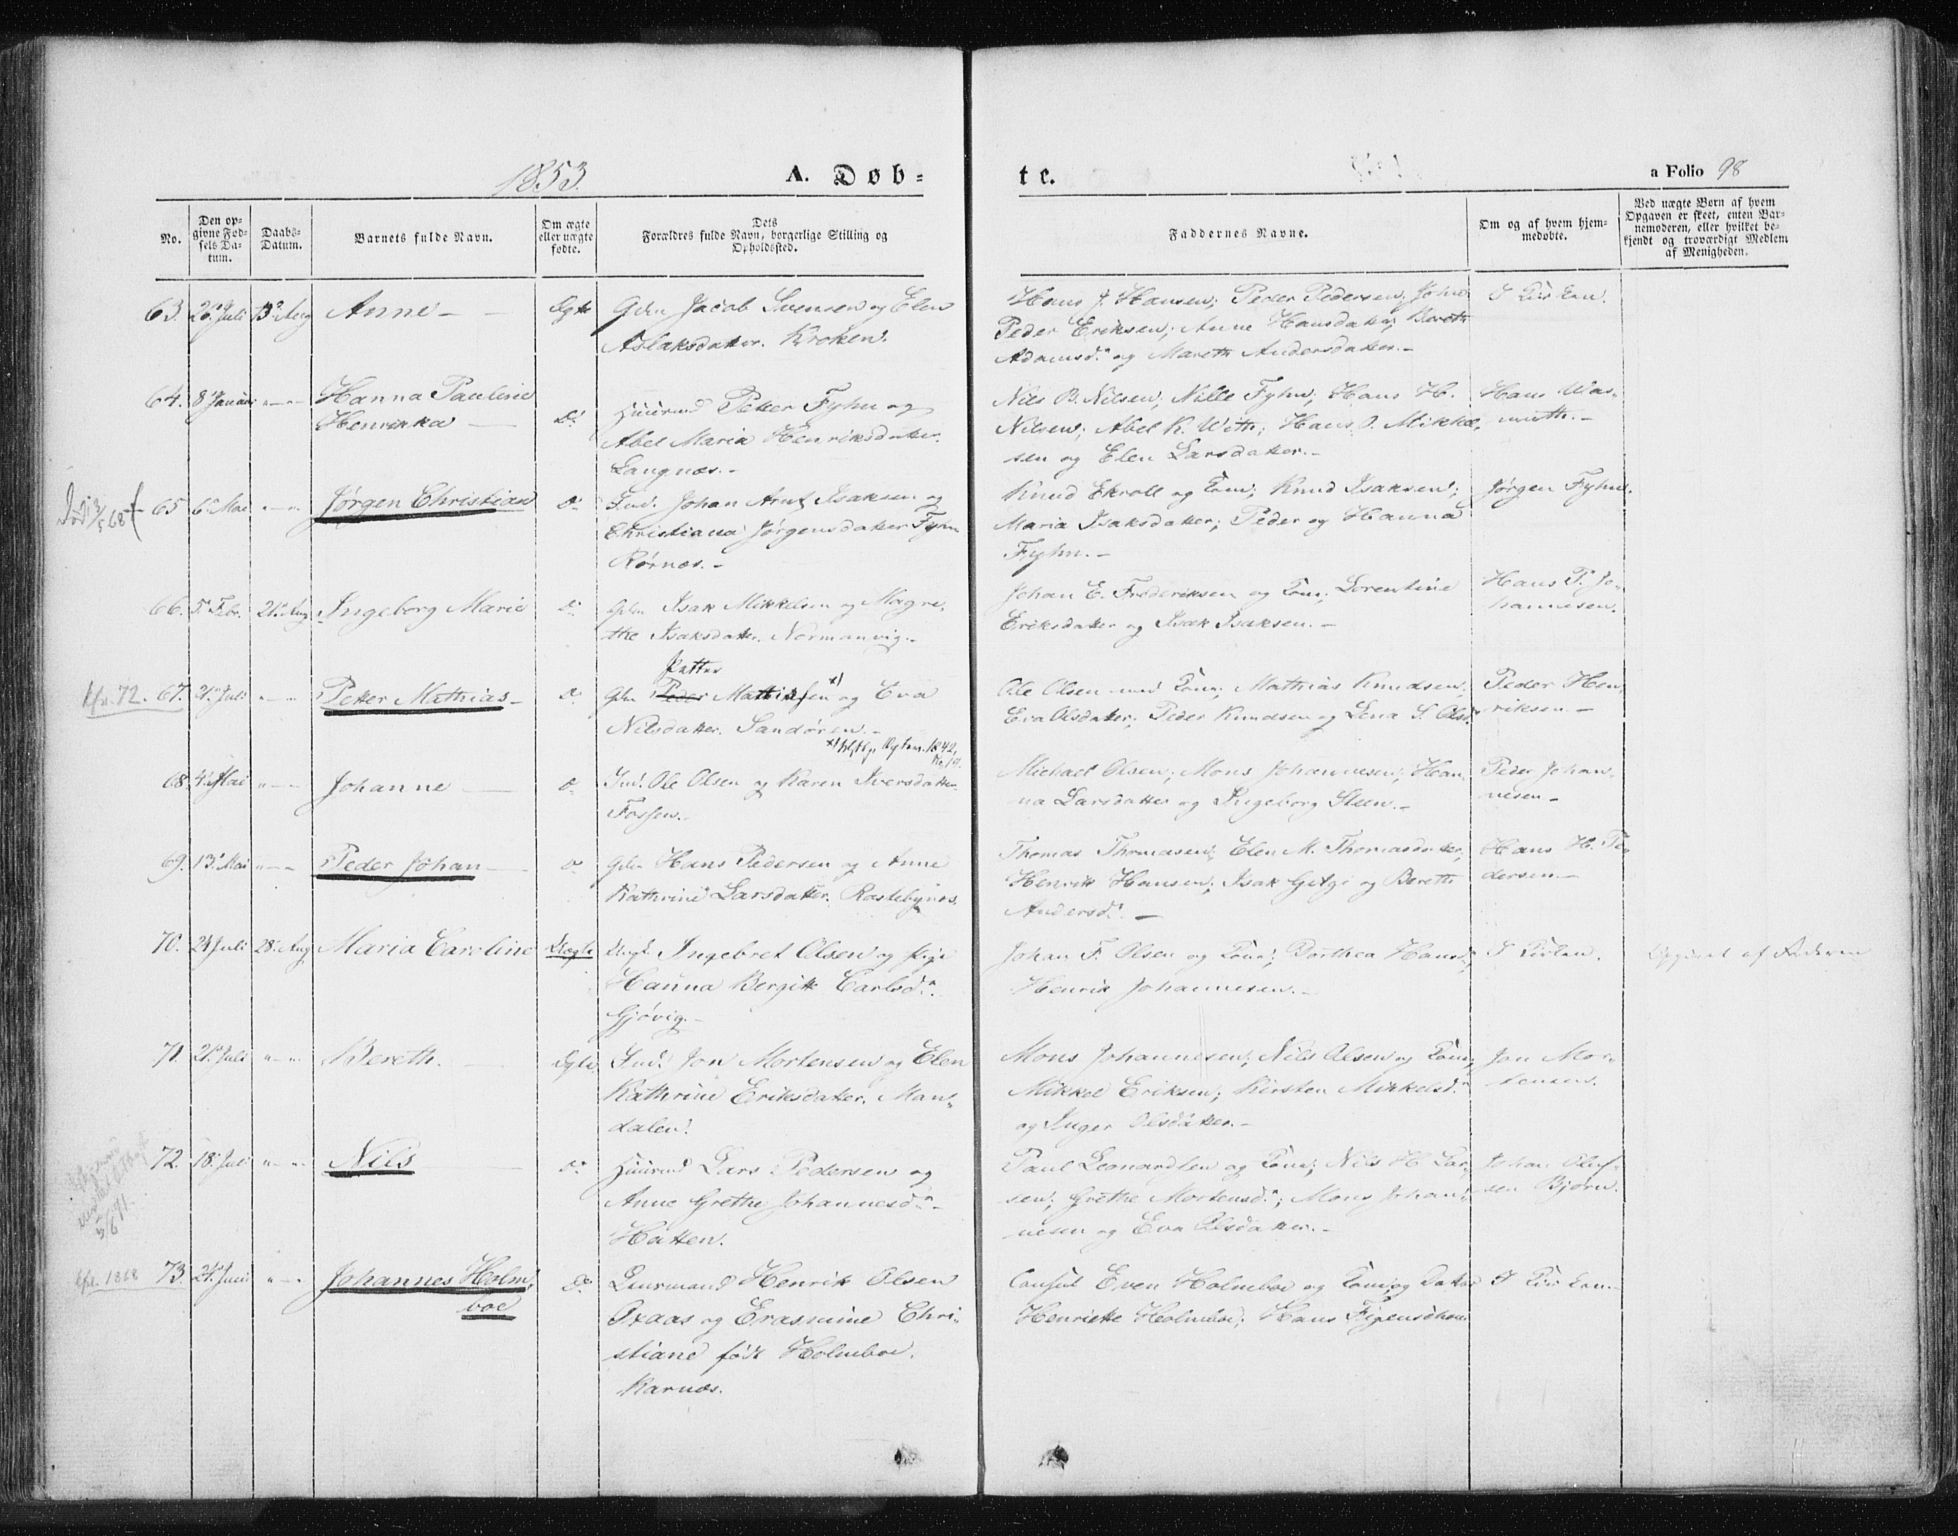 1853. A. Døb= te. a Folio 98
No.
Den op=
givne Fød=
sels Da=
tum.
Daabs=
Datum.
Barnets fulde Navn.
Om ægte
eller uægte
fødte.
Dets
Forældres fulde Navn, borgerlige Stilling og
Opholdssted.
Faddernes Navne.
Om og af hvem hjem=
medøbte.
Ved uægte Børn af hvem
Opgaven er skeet, enten Bar=
nemoderen, eller hvilket be=
kjendt og troværdigt Medlem
af Menigheden.
63. 26 Juli 13 Aug Anne - Ægte Gdm Jacob Svensen og Elen
Aslaksdatter. Kroken.
Hans J. Hansen; Peder Pedersen; John
Peder Eriksen; Anne Hansdatter; Bereth
Adamsd. og Mareth Andersdatter.-
I Kirken.
64. 8 Januar "-" Hanna Pauline
Henrikka - Do Huusmd Petter Fyhn og
Abel Maria Henriksdatter.
Langnæs.-
Nils B. Nilsen; Nille Fyhn; Hans H.
Nilsen; Abel K. With; Hans O. Mikkel=
sen og Elen Larsdatter.-
Hans Was=
muth.-
Død 3/5 68 † 65 6 Mai "-" Jørgen Christian Do Ind. Johan Arnt Isaksen og
Christiana Jørgensdatter Fyhn
Rørnæs.-
Knud Ekroll og Kone; Knud Isaksen;
Maria Isaksdatter; Peder og Hanna
Fyhn.-
Jørgen Fyhn.
66. 5 Febr. 21 Aug Ingeborg Marie Do Gdm Isak Mikkelsen og Magre=
the Isaksdatter. Normanvig.-
Johan E. Frederiksen og Kone; Lorentine
Eriksdatter og Isak Isaksen.-
Hans P. Jo=
hannesen.
72. 67. 21 Juli "-" Petter Mathias - Do Gdm Peder Mathisen x) og Eva
Nilsdatter. Sandøren.-
Ole Olsen med Kone; Mathias Knudsen;
Eva Olsdatter; Peder Knudsen og Lena S. Olsd.
Peder Hen=
riksen.-
68. 4 Mai "-" Johanne - Do Ind. Ole Olsen og Karen Iversdatter
Fossen.-
Michael Olsen; Mons Johannesen; Han=
na Larsdatter og Ingeborg Steen.-
Peder Johan=
nesen.-
69. 13 Mai "-" Peder Johan - Do Gdm Hans Pedersen og Anne
Kathrine Larsdatter.
Thomas Thomasen; Elen M. Thomasdatter;
Henrik Hansen; Isak og Bereth
Andersd.-
Hans H. Pe=
dersen.-
70. 21 Juli 28 Aug Maria Caroline Uægte Ingebret Olsen og Pige
Hanna Bergith Carlsd.
Gjøvig.-
Johan F. Olsen og Kone; Dorthea Hansd.;
Henrik Johannesen.-
I Kirken.
Opgivet af Faderen
71. 21 Juli "-" Bereth. - Ægte Ind. Jon Mortensen og Elen
Kathrine Eriksdatter. Man=
dalen.
Mons Johannesen; Nils Olsen og Kone;
Mikkel Eriksen; Kirsten Mikkelsd.
og Inger Olsdatter.-
Jon Mor=
tensen.
5/6 71. 72. 18 Juli "-" Nils - Do Huusmd Lars Pedersen og
Anne Grethe Johannesd.-
Hatten.
Paul Leonardsen og Kone; Nils H. Lar=
sen; Grethe Mortensd.; Mons Johan=
nesen og Eva Olsdatter.-
Johan Oluf=
sen Bjørn.
1868 73. 24 Juni "-" Johannes Holm=
boe Do Lensmand Henrik Olsen
Oxaas og Erasmine Chri=
stiane født Holmboe.
Karnæs.
Consul Even Holmboe og Kone og Datter
Henriette Holmboe; Hans Figenschou
I Kirken.